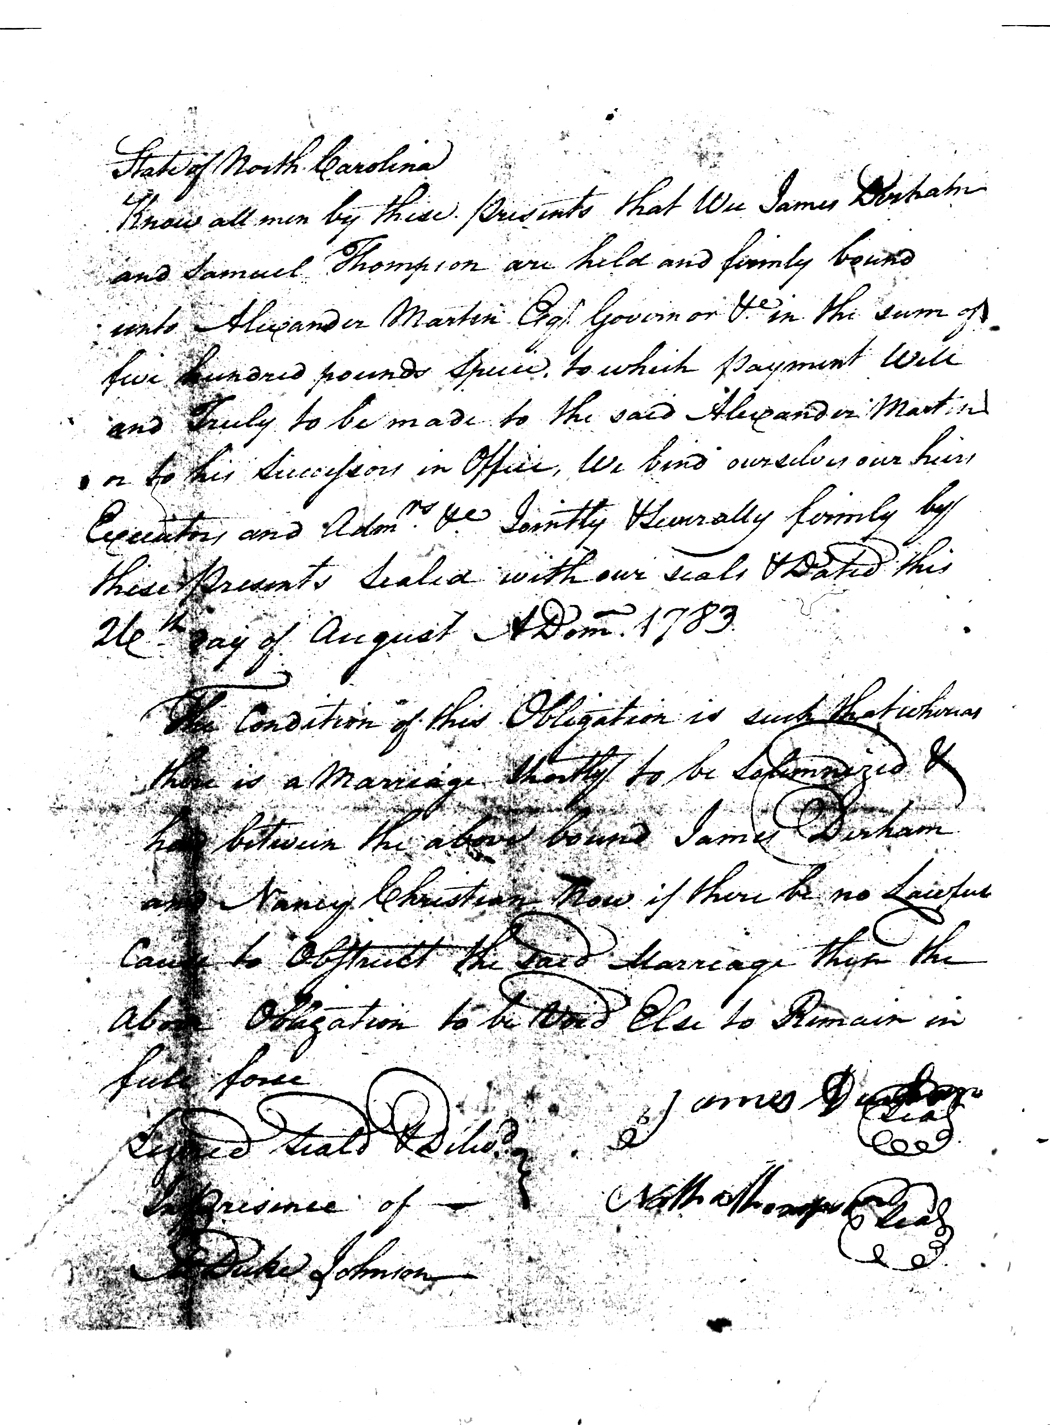 State of North Carolina
Know all men by these presents that Wee James Dirham
and Samuel Thompson are held and firmly bound
unto Alexander Martin Esqr. Governor &c in the sum of
five hundred pounds Specie. to which payment Well
and Truly to be made to the said Alexander Martin
or to his Successors in Office, We bind ourselves our heirs
Executors and Admnrs &c Jointly & Severally firmly by
these presents Sealed with our seals & Dated this
26th Day of August A Dom. 1783.
The Condition of this Obligation is such that whereas
there is a Marriage shortly to be Solemnized &
had between the above bound James Dirham
and Nancy Christian Now if there be no Lawful
Cause to Obstruct the said Marriage then the
above Obligation to be Void Else to Remain in
full force
Signed Seald & Delivd
In presence of —
Duke Johnson
James Seal
Thompson Seal